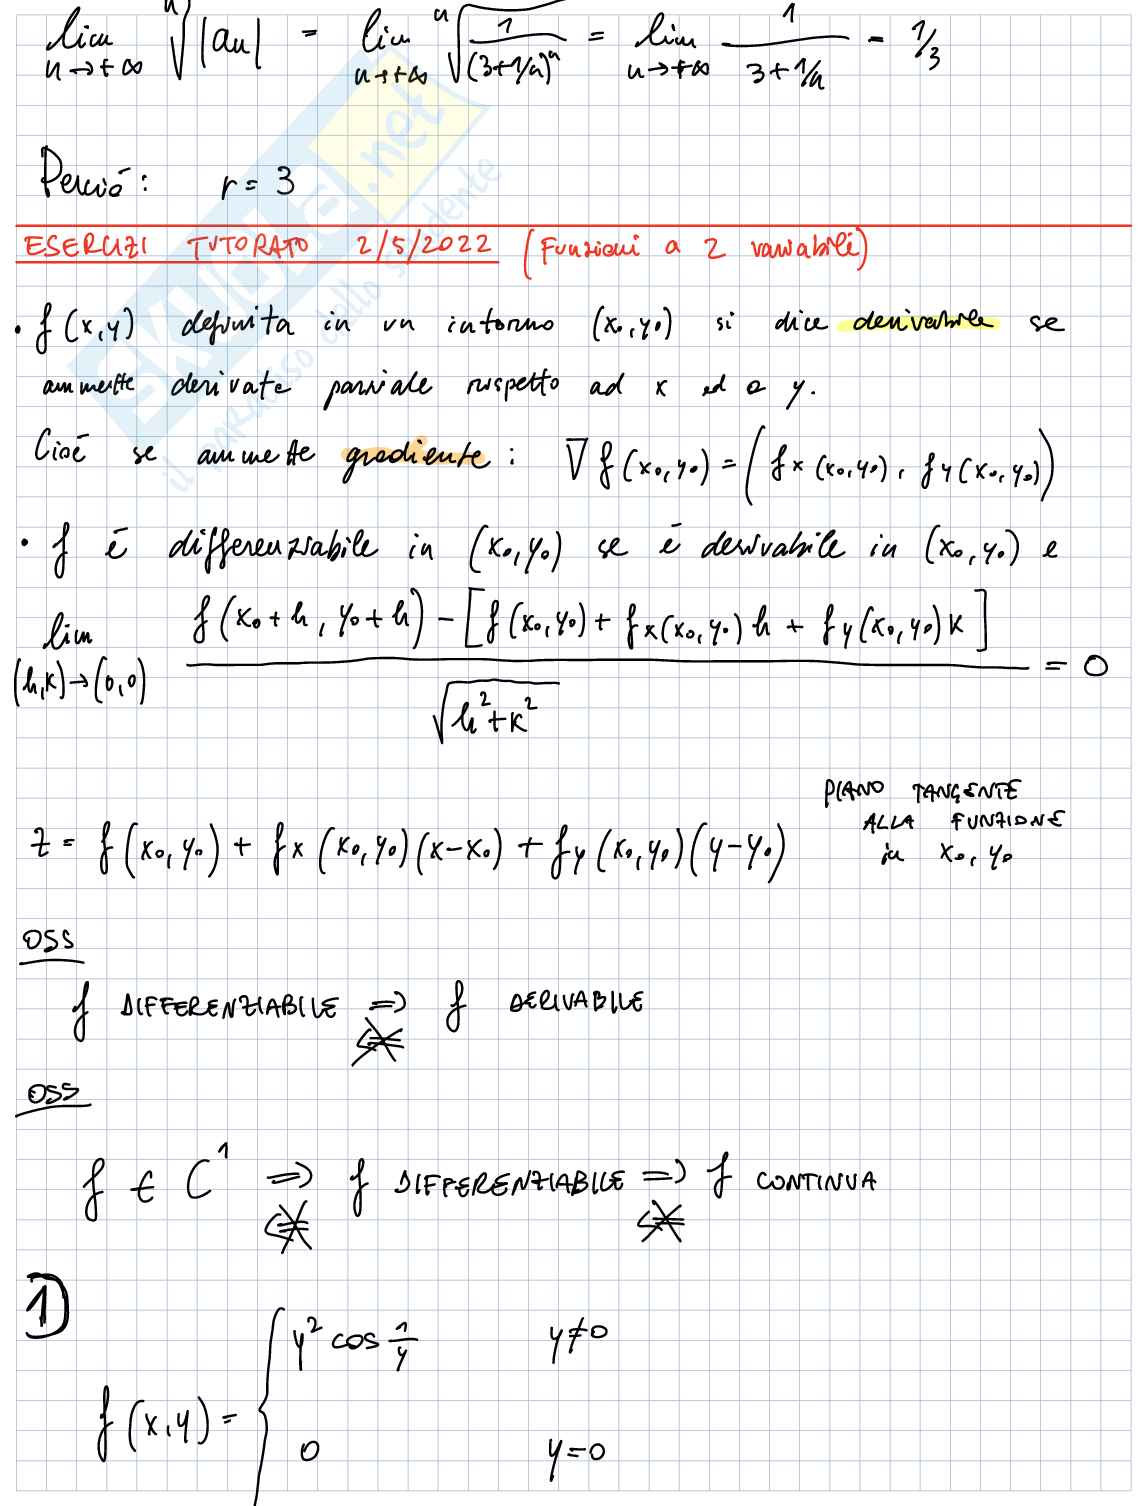 lim n→+∞ ⁿ√|an| = lim n→+∞ ⁿ√(1/(3+1/n)ⁿ) = lim n→+∞ 1/(3+1/n) = 1/3
Perciò: r = 3
ESERCIZI TUTORATO 2/5/2022 (Funzioni a 2 variabili)
• f(x,y) definita in un intorno (x₀,y₀) si dice derivabile se
ammette derivate parziale rispetto ad x ed a y.
Cioè se ammette gradiente: ∇f(x₀,y₀) = (fx(x₀,y₀), fy(x₀,y₀))
• f è differenziabile in (x₀,y₀) se è derivabile in (x₀,y₀) e
lim (h,k)→(0,0) f(x₀+h, y₀+h) - [f(x₀,y₀) + fx(x₀,y₀)h + fy(x₀,y₀)k] / √(h²+k²) = 0
z = f(x₀,y₀) + fx(x₀,y₀)(x-x₀) + fy(x₀,y₀)(y-y₀)
PIANO TANGENTE
ALLA FUNZIONE
in x₀,y₀
OSS
f DIFFERENZIABILE ⇒ f DERIVABILE
⇍
OSS
f ∈ C¹ ⇒ f DIFFERENZIABILE ⇒ f CONTINUA
⇍ ⇍
1)
f(x,y) = { y² cos 1/y y≠0
0 y=0
SKUOLA.net
il paradiso dello studente